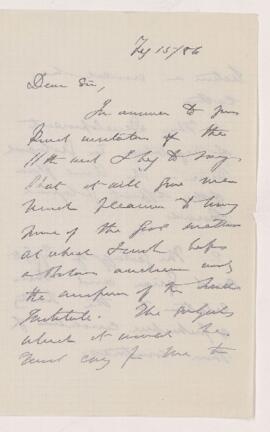 Fey 15/86
Dear Sir,
In answer to your
kind invitation of the
11th inst I beg to say
that it will give me
much pleasure to
of the
at which I
a Boston audience under
the auspices of the
Institute. The subjects
which it would be
most easy for me to